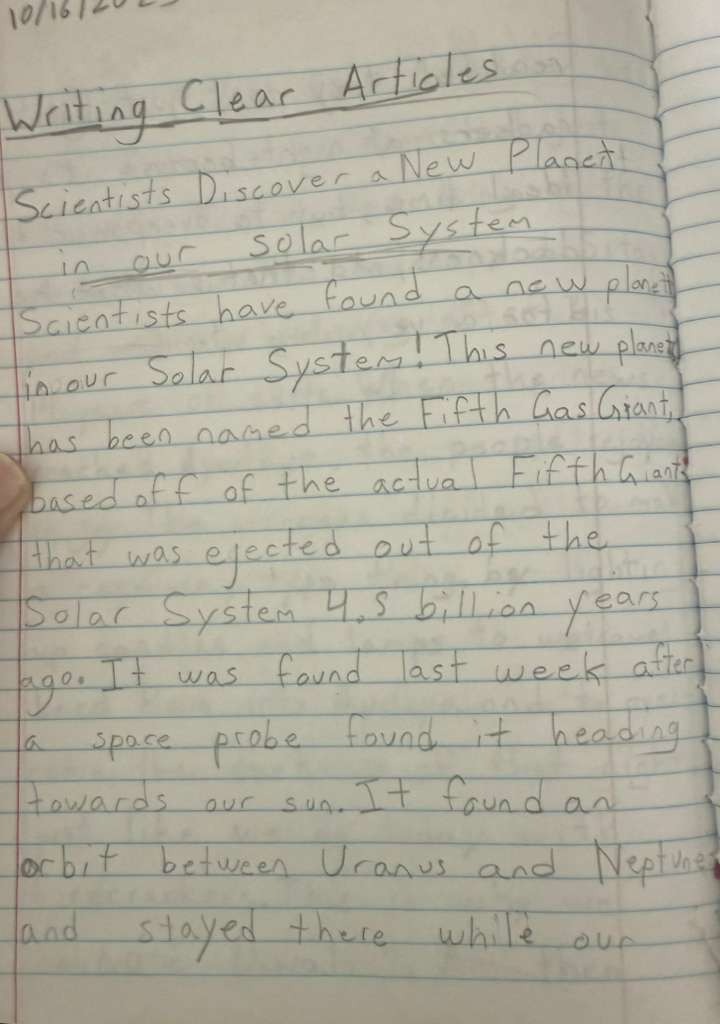 10/16/202
Writing Clear Articles
Scientists Discover a New Planet
in our Solar System
Scientists have found a new planet
in our Solar System! This new planet
has been named the Fifth Gas Giant,
based off of the actual Fifth Giant
that was ejected out of the
Solar System 4.5 billion years
ago. It was found last week after
a space probe found it heading
towards our sun. It found an
orbit between Uranus and Neptune
and stayed there while our